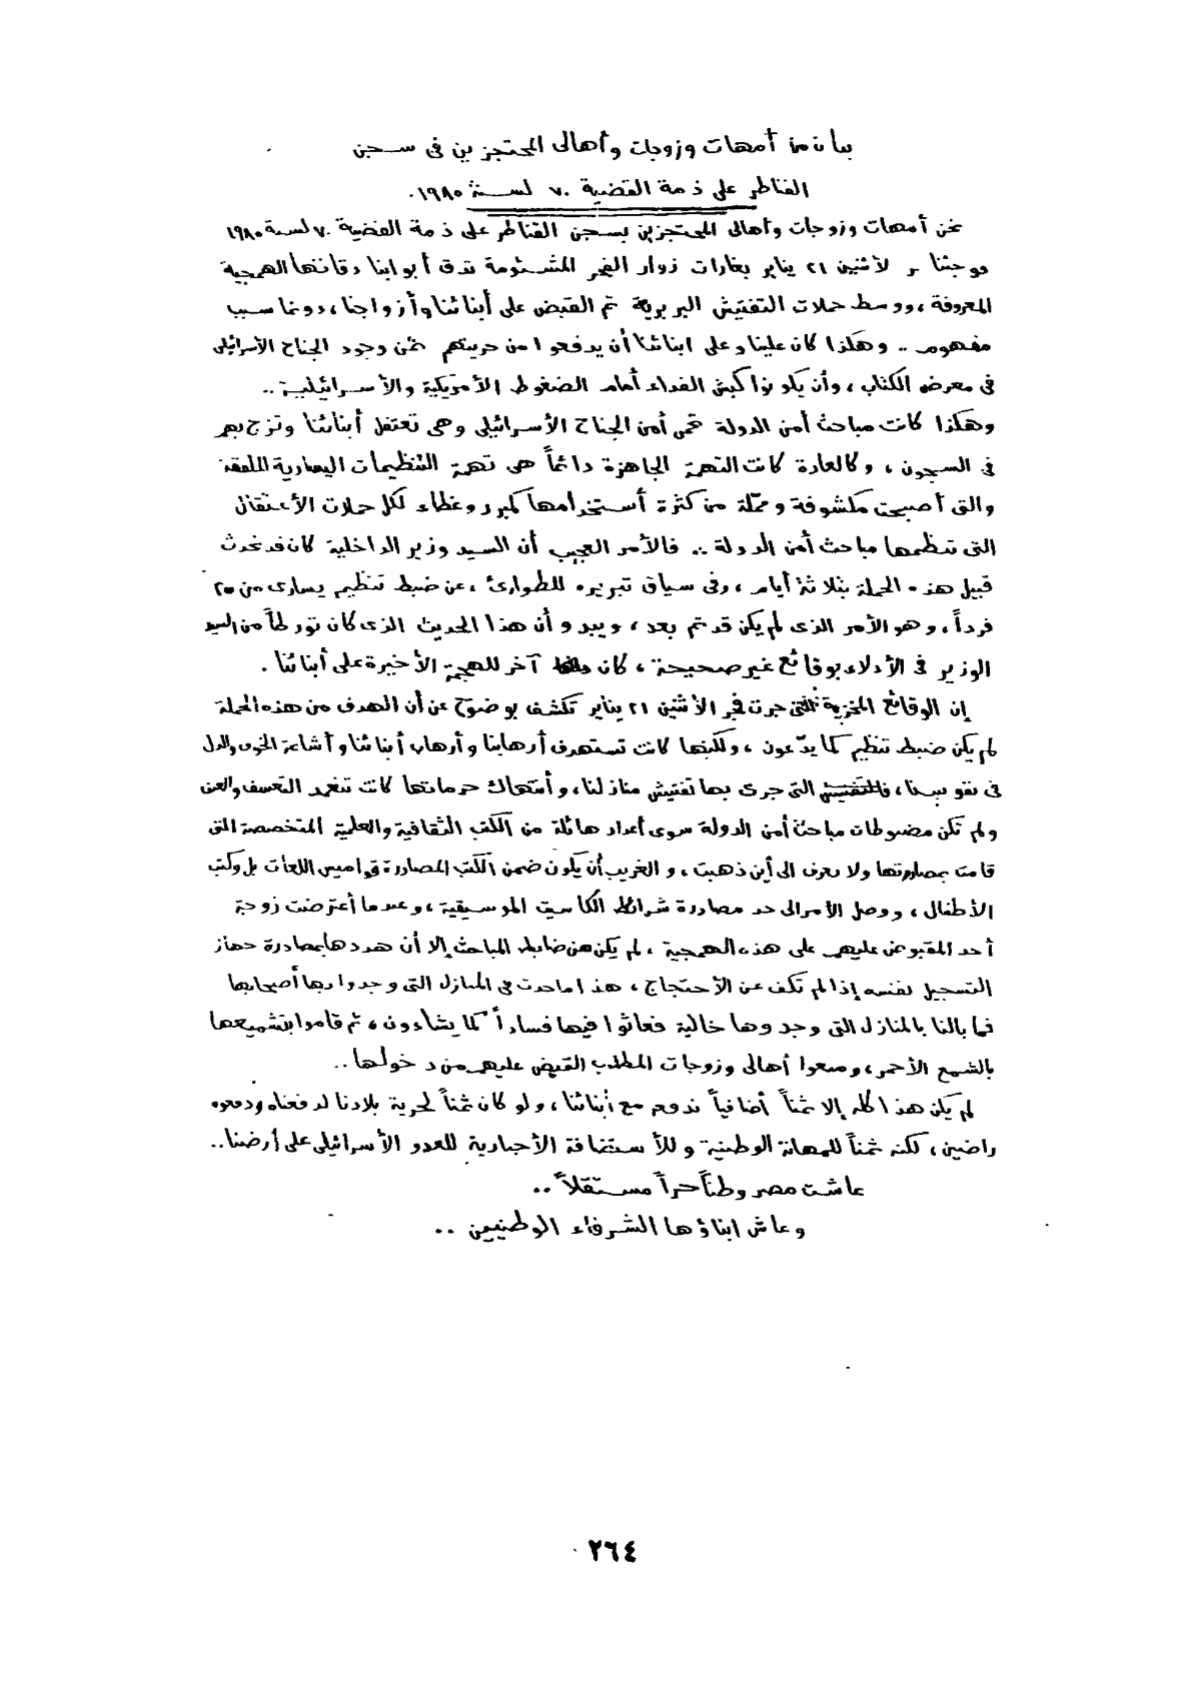 بيان من أمهات وزوجات وأهالى المحتجزين فى سجن
القناطر على ذمة القضية ٧٠ لسنة ١٩٨٥.
نحن أمهات وزوجات وأهالى المحتجزين بسجن القناطر على ذمة القضية ٧٠ لسنة ١٩٨٥
فوجئنا الأثنين ٢١ يناير بغارات زوار الفجر المشئومة تدق أبوابنا دقاتها الهمجية
المعروفة، ووسط حملات التفتيش البربرية تم القبض على أبنائنا وأزواجنا، دونما سبب
مفهوم .. وهكذا كان علينا وعلى ابنائنا أن يدفعوا من حريتهم ثمن وجود الجناح الأسرائيلى
فى معرض الكتاب، وأن يكونوا كبش الفداء أمام الضغوط الأمريكية والأسرائيلية ..
وهكذا كانت مباحث أمن الدولة تحمى أمن الجناح الأسرائيلى وهى تعتقل أبنائنا وتزج بهم
فى السجون، وكالعادة كانت التهمة الجاهزة دائماً هى تهمة التنظيمات اليسارية الملفقة
والتى أصبحت مكشوفة ومملة من كثرة أستخدامها كمبرر وغطاء لكل حملات الأعتقال
التى تنظمها مباحث أمن الدولة .. فالأمر العجيب أن السيد وزير الداخلية كان قد تحدث
قبيل هذه الحملة بثلاثة أيام، وفى سياق تبريره للطوارئ، عن ضبط تنظيم يسارى من ٢٥
فرداً، وهو الأمر الذى لم يكن قد تم بعد، ويبدو أن هذا الحديث الذى كان تورطاً من السيد
الوزير فى الأدلاء بوقائع غير صحيحة، كان آخر للهجمة الأخيرة على أبنائنا.
إن الوقائع المخزية التى جرت فجر الأثنين ٢١ يناير تكشف بوضوح عن أن الهدف من هذه الحملة
لم يكن ضبط تنظيم كما يدّعون، ولكنها كانت تستهدف أرهابنا وأرهاب أبنائنا وأشاعة الخوف والذل
فى نفوسنا، التى جرى بها تفتيش منازلنا، وأنتهاك حرماتها كانت تتعمد التعسف والعنف
ولم تكن مضبوطات مباحث أمن الدولة سوى أعداد هائلة من الكتب الثقافية والعلمية المتخصصة التى
قامت بمصادرتها ولا نعرف الى أين ذهبت، والغريب أن يكون ضمن الكتب المصادرة قواميس اللغات بل وكتب
الأطفال، ووصل الأمر الى حد مصادرة شرائط الكاسيت الموسيقية، وعندما أعترضت زوجة
أحد المقبوض عليهم على هذه الهمجية، لم يكن من ضابط المباحث إلا أن هددها بمصادرة جهاز
التسجيل نفسه إذا لم تكف عن الأحتجاج، هذا ماحدث فى المنازل التى وجدوا بها أصحابها
فما بالنا بالمنازل التى وجدوها خالية فعاثوا فيها فساداً كما يشاءون، ثم قاموا بتشميعها
بالشمع الأحمر، ومنعوا أهالى وزوجات المطلوب القبض عليهم من دخولها..
لم يكن هذا كله إلا ثمناً أضافياً ندفعه مع أبنائنا، ولو كان ثمناً لحرية بلادنا لدفعناه ودفعوه
راضين، لكنه ثمناً للمهانة الوطنية وللأستضافة الأجبارية للعدو الأسرائيلى على أرضنا..
عاشت مصر وطناً حراً مستقلاً ..
وعاش ابناؤها الشرفاء الوطنيين ..
٢٦٤